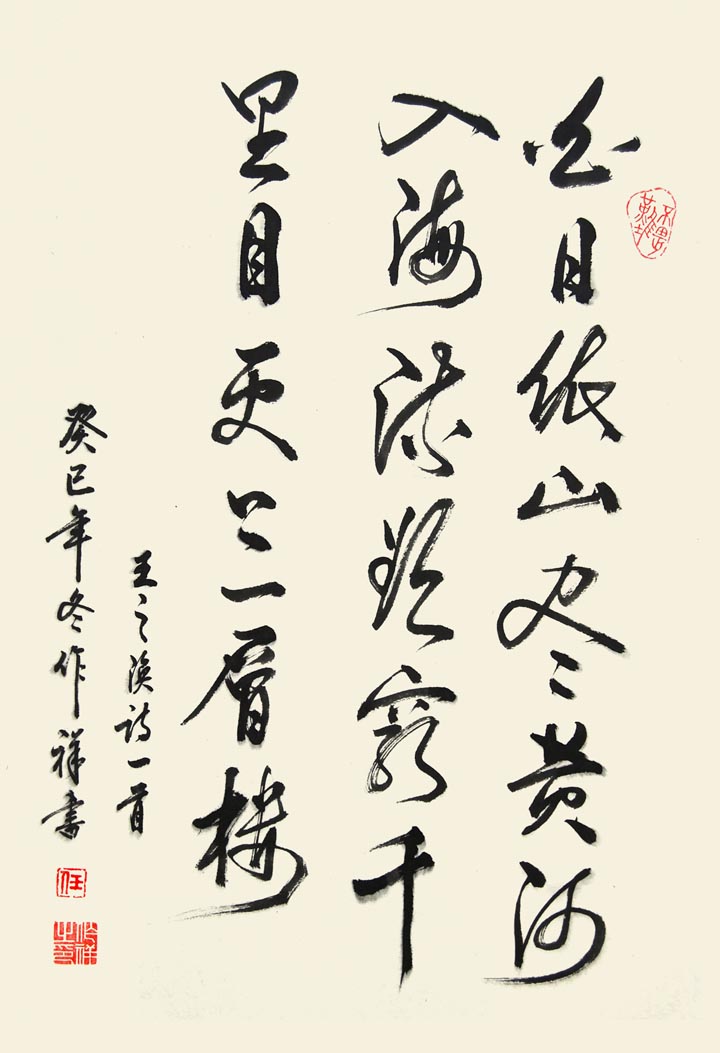 白日依山尽黄河
入海流欲穷千
里目更上一層楼
王之涣诗一首
癸巳年冬作祥書
任
作祥之印